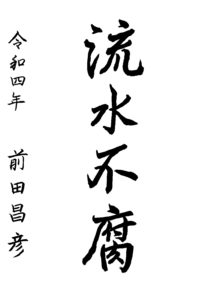 流水不腐
令和四年 前田昌彦